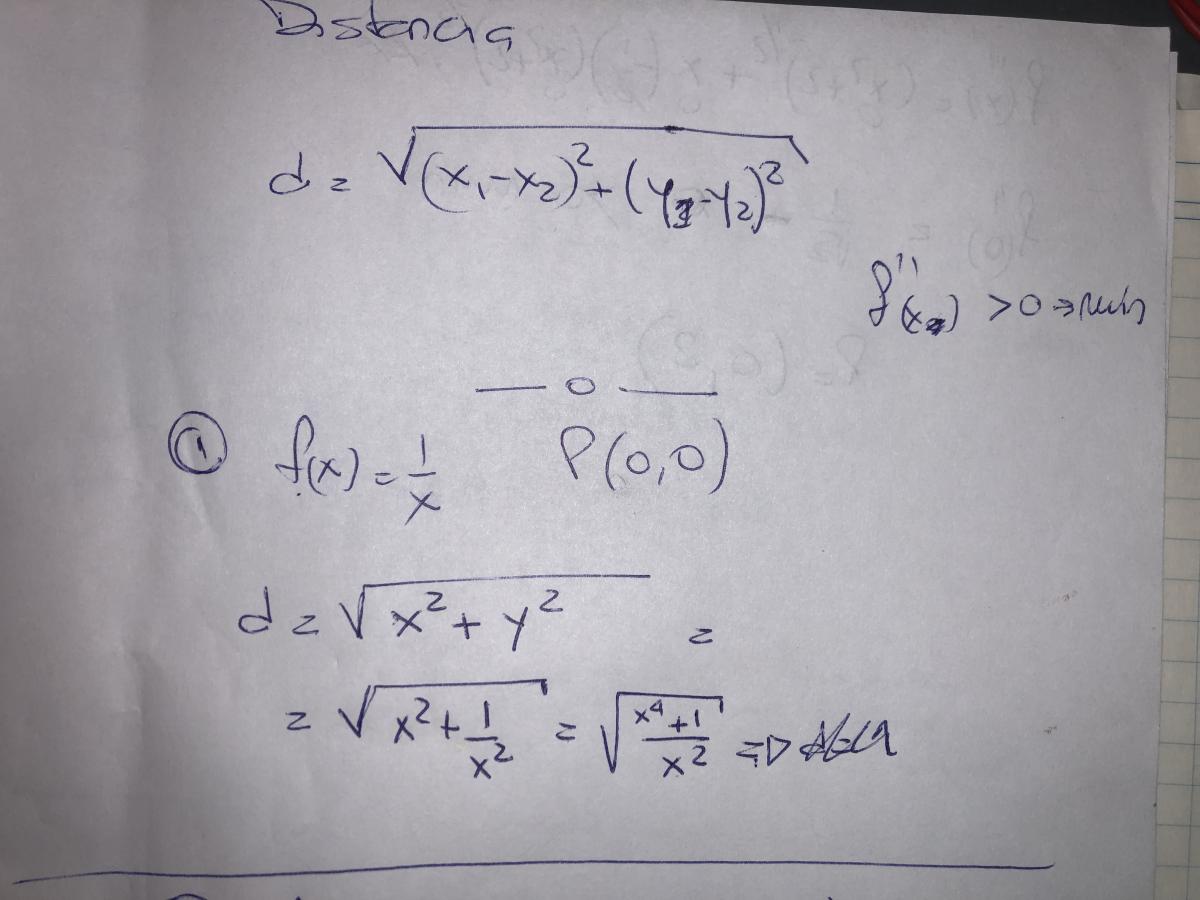 Distancia
d = √(x₁-x₂)² + (y₁-y₂)²
f''(x₂) > 0 ⇒ min
— o —
① f(x) = 1/x P(0,0)
d = √x² + y² =
= √x² + 1/x² = √(x⁴+1)/x² ⇒